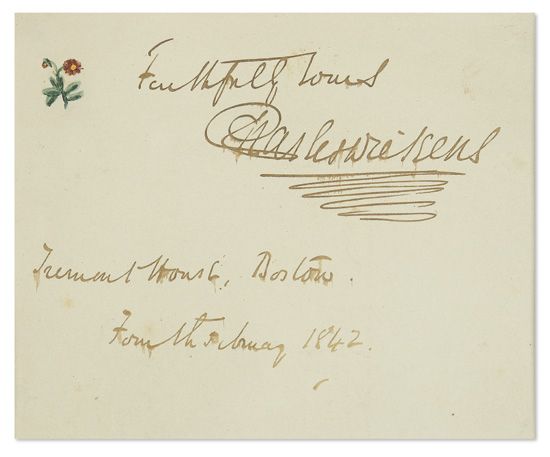 Faithfully Yours
Charles Dickens
Tremont House, Boston.
Fourth February 1842.